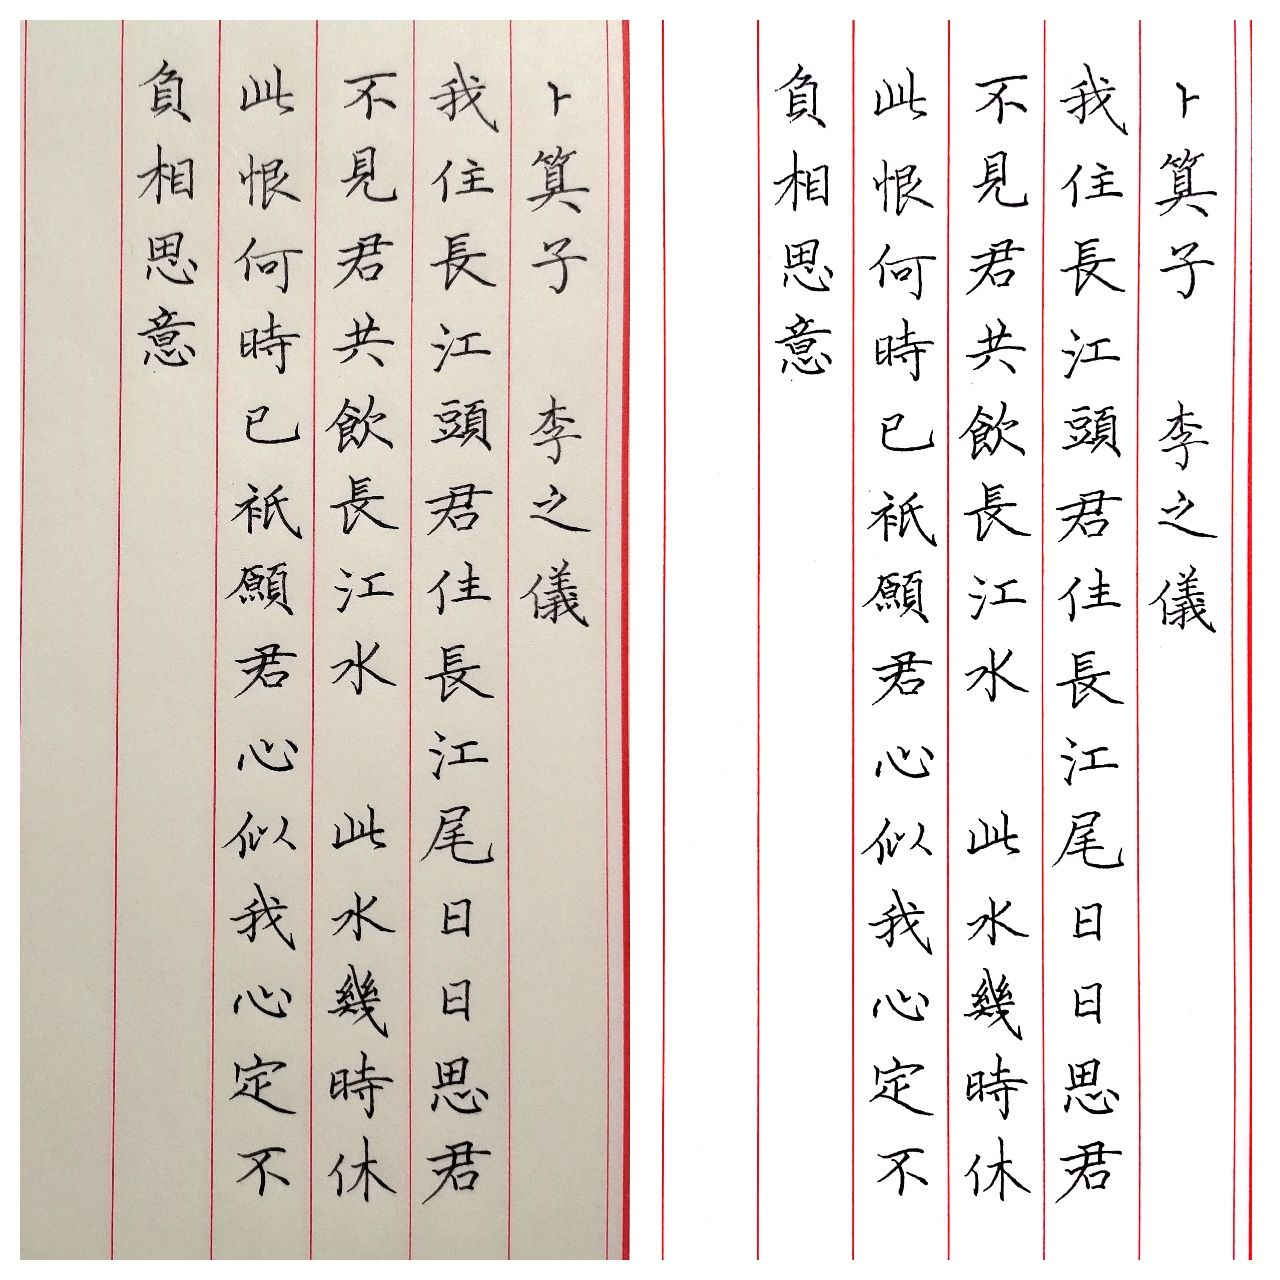 卜算子 李之儀
我住長江頭君住長江尾日日思君
不見君共飲長江水 此水幾時休
此恨何時已衹願君心似我心定不
負相思意
卜算子 李之儀
我住長江頭君住長江尾日日思君
不見君共飲長江水 此水幾時休
此恨何時已衹願君心似我心定不
負相思意